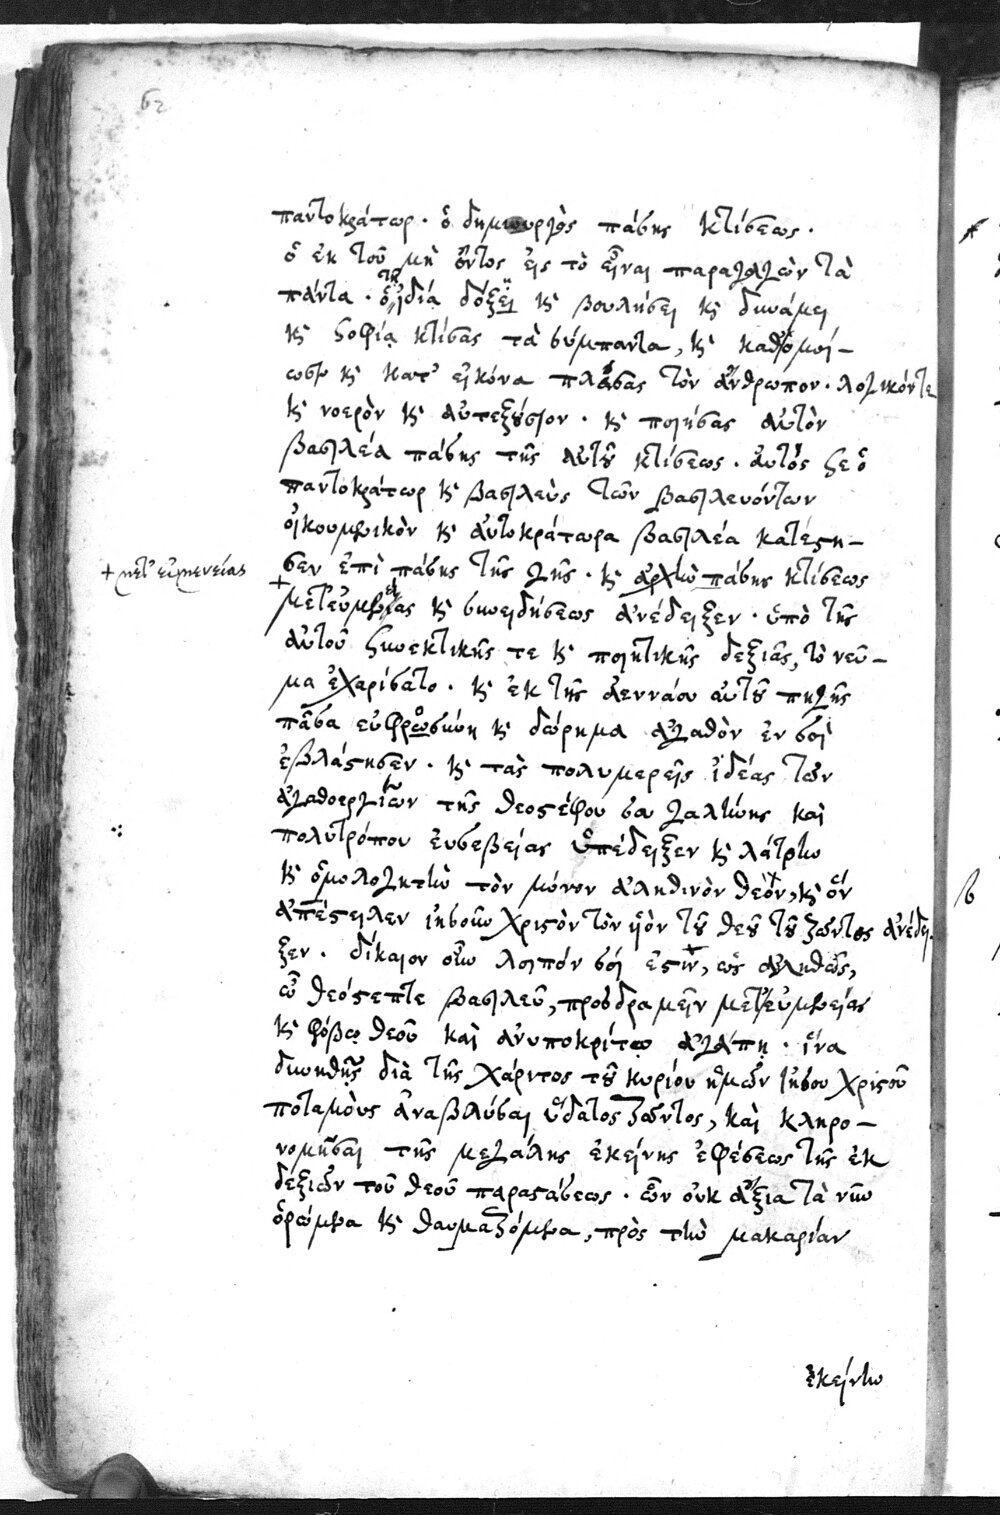 62
παντοκράτωρ · ὁ δημιουργὸς πάσης κτίσεως ·
ὁ ἐκ τοῦ μὴ ὄντος εἰς τὸ εἶναι παραγαγὼν τὰ
πάντα · ὁ τῆ ἰδία δόξει κ βουλήσει κ δυνάμει
κ σοφία κτίσας τὰ σύμπαντα, κ καθ' ὁμοί-
ωσιν κ κατ' εἰκόνα πλάσας τὸν ἄνθρωπον · λογικόν τε
κ νοερὸν κ αὐτεξούσιον · κ ποιήσας αὐτὸν
βασιλέα πάσης τῆς αὐτοῦ κτίσεως · αὐτός σε ὁ
παντοκράτωρ κ βασιλεὺς τῶν βασιλευόντων
οἰκουμενικὸν κ αὐτοκράτωρα βασιλέα κατέστη-
σεν ἐπὶ πάσης τῆς γῆς · κ ἀρχὴν πάσης κτίσεως
+ μετ' εὐμενείας
+
μετ' εὐμενείας κ συνειδήσεως ἀνέδειξεν · ὑπὸ τῆς
αὐτοῦ συνεκτικῆς τε κ ποιητικῆς δεξιᾶς, τὸ νεῦ-
μα ἐχαρίσατο · κ ἐκ τῆς ἀεννάου αὐτοῦ πηγῆς
πᾶσα εὐφροσύνη κ δώρημα ἀγαθὸν ἐν σοὶ
ἐβλάστησεν · κ τὰς πολυμερεῖς ἰδέας τῶν
ἀγαθοεργιῶν τῆς θεοστέφου σου γαλήνης καὶ
πολυτρόπου εὐσεβείας ὑπέδειξεν κ λάτρην
κ ὁμολογητὴν τὸν μόνον ἀληθινὸν θεόν, κ ὃν
ἀπέστειλεν ἰησοῦν χριστὸν τὸν υἱὸν τοῦ θεοῦ τοῦ ζῶντος ἀνέδει
ξεν · δίκαιον οὖν λοιπόν σοί ἐστιν, ὡς ἀληθῶς,
ὦ θεόστεπτε βασιλεῦ, προσδραμεῖν μετ' εὐμενείας
κ φόβω θεοῦ καὶ ἀνυποκρίτω ἀγάπη · ἵνα
δυνηθῆς διὰ τῆς χάριτος τοῦ κυρίου ἡμῶν ἰησου χριστοῦ
ποταμοὺς ἀναβλύσαι ὕδατος ζῶντος, καὶ κληρο-
νομῆσαι τῆς μεγάλης ἐκείνης ἐφέσεως τῆς ἐκ
δεξιῶν τοῦ θεοῦ παραστάσεως · ὧν οὐκ ἄξια τὰ νῦν
ὁρώμενα κ θαυμαζόμενα, πρὸς τὴν μακαρίαν
ἐκείνην